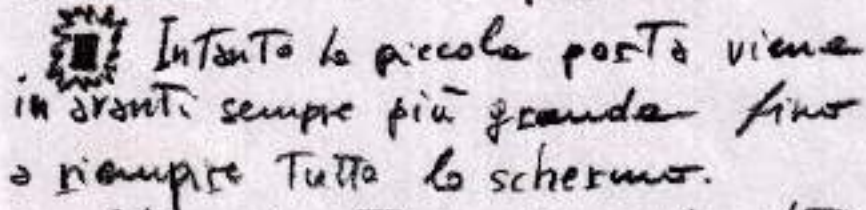 Intanto la piccola porta viene
in avanti sempre più grande fino
a riempire tutto lo schermo.